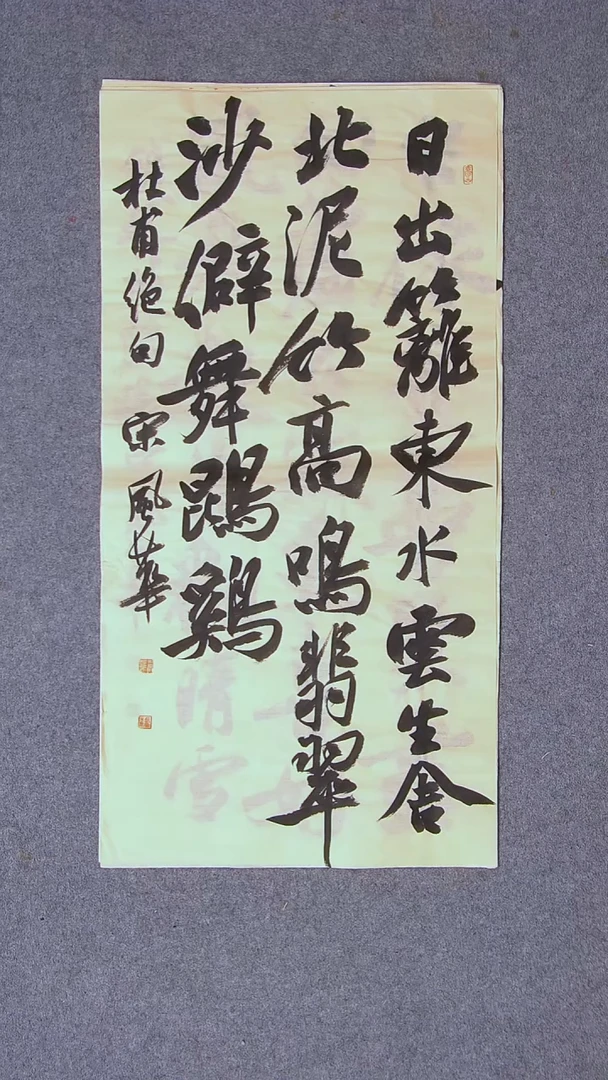 日出籬東水雲生舍
北泥竹高鳴翡翠
沙僻舞鵾鷄
杜甫绝句 宋風華